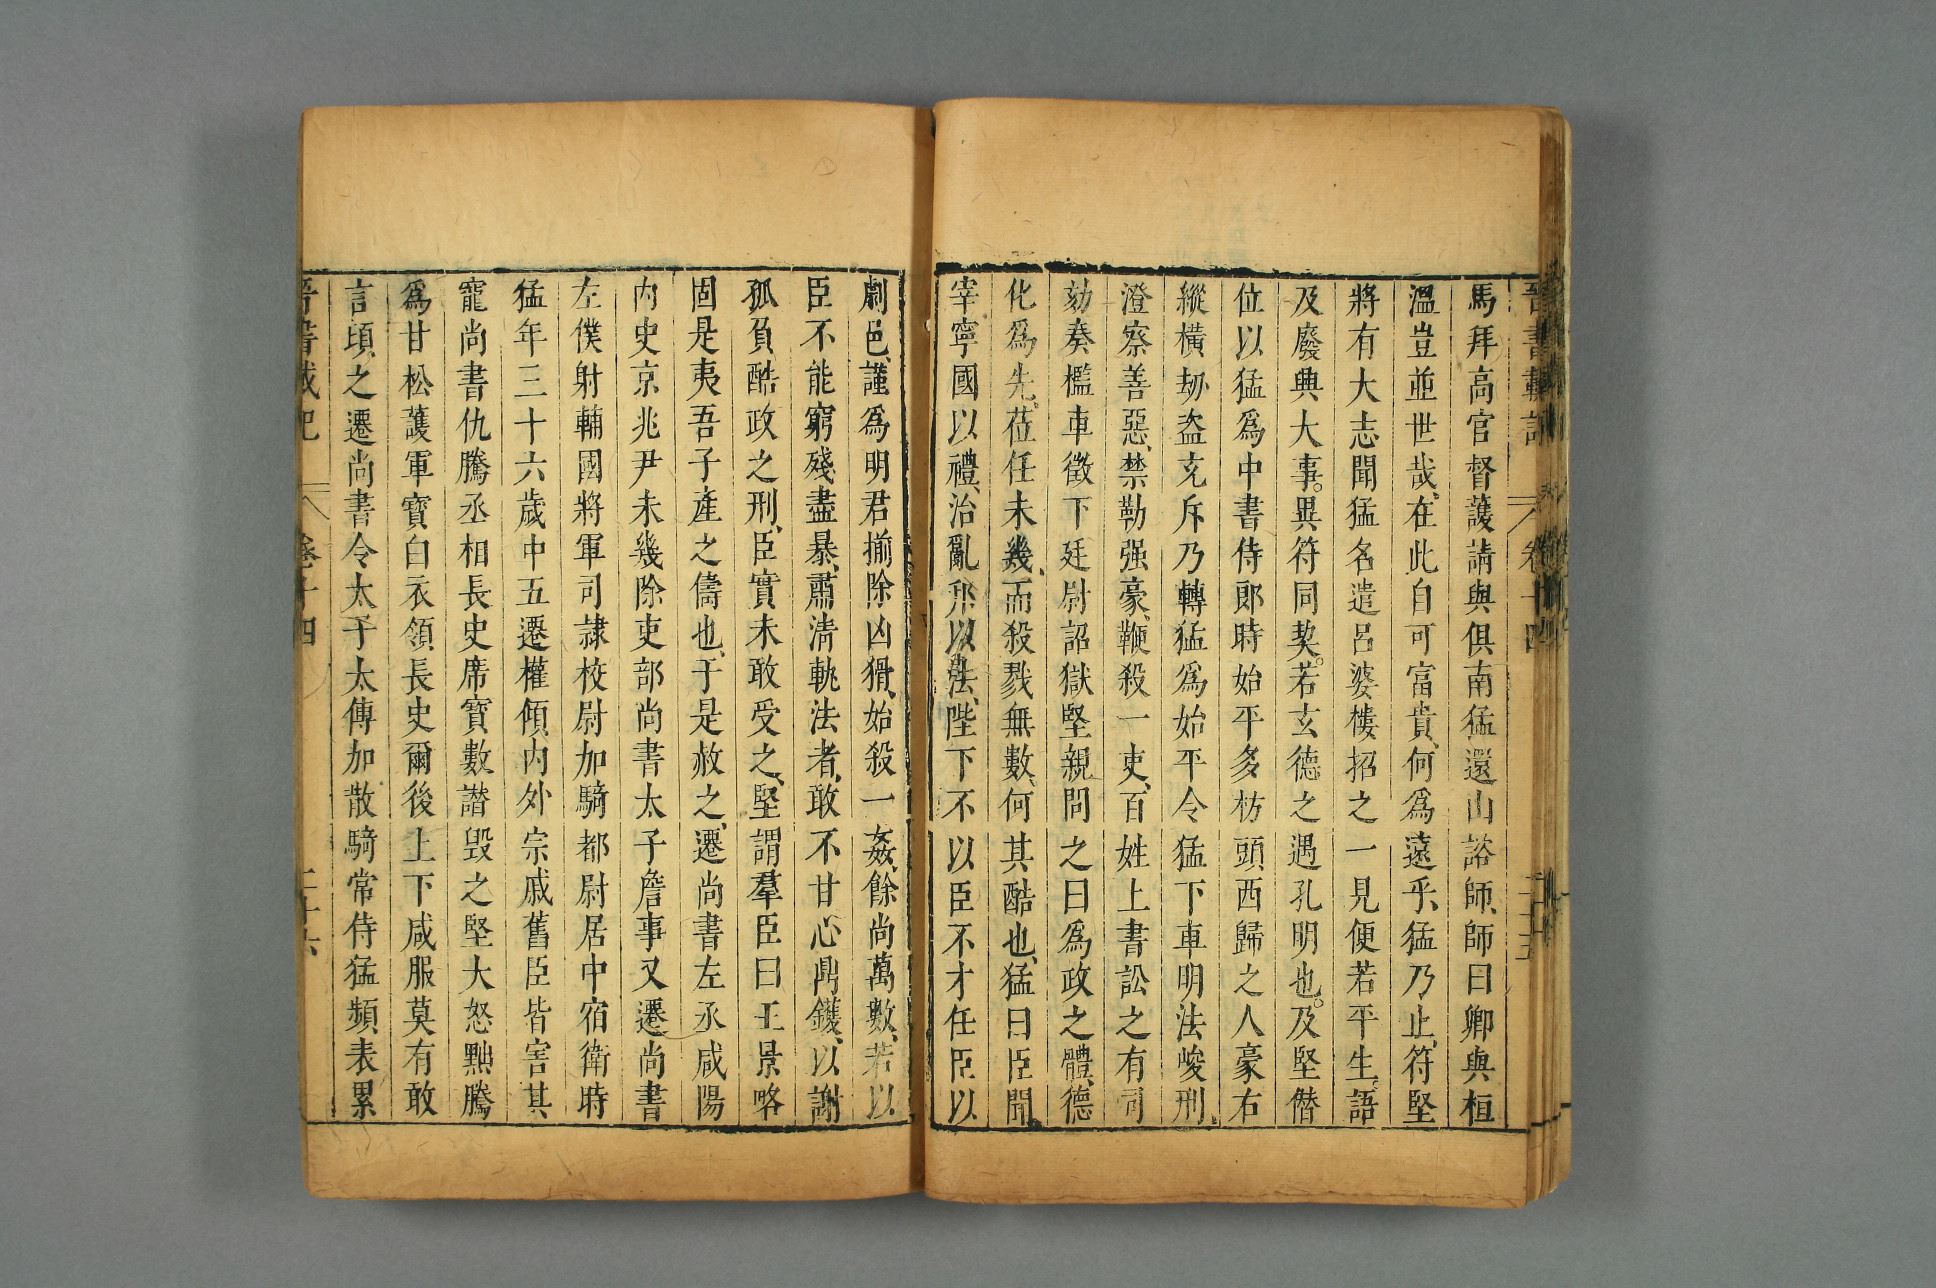 馬拜高官督護請與俱南猛還山諮師師曰卿與桓
溫豈並世哉在此自可富貴何爲遠乎猛乃止符堅
將有大志聞猛名遣呂婆樓招之一見便若平生語
及廢興大事異符同契若玄德之遇孔明也及堅僭
位以猛爲中書侍郎時始平多枋頭西歸之人豪右
縱橫刼盗充斥乃轉猛爲始平令猛下車明法峻刑
澄察善惡禁勒强豪鞭殺一吏百姓上書訟之有司
劾奏檻車徵下廷尉詔獄堅親問之曰爲政之體德
化爲先莅任未幾而殺戮無數何其酷也猛曰臣聞
宰寧國以禮治亂邦以法陛下不以臣不才任臣以
劇邑謹爲明君揃除凶猾始殺一姦餘尚萬數若以
臣不能窮殘盡暴肅清軌法者敢不甘心鼎鑊以謝
孤負酷政之刑臣實未敢受之堅謂羣臣曰王景略
固是夷吾子產之儔也于是赦之遷尚書左丞咸陽
内史京兆尹未幾除吏部尚書太子詹事又遷尚書
左僕射輔國將軍司隷校尉加騎都尉居中宿衛時
猛年三十六歲中五遷權傾内外宗戚舊臣皆害其
寵尚書仇騰丞相長史席寶數譖毀之堅大怒黜騰
爲甘松護軍寶白衣領長史爾後上下咸服莫有敢
言頃之遷尚書令太子太傅加散騎常侍猛頻表累
晉書載記 卷十四 二十六